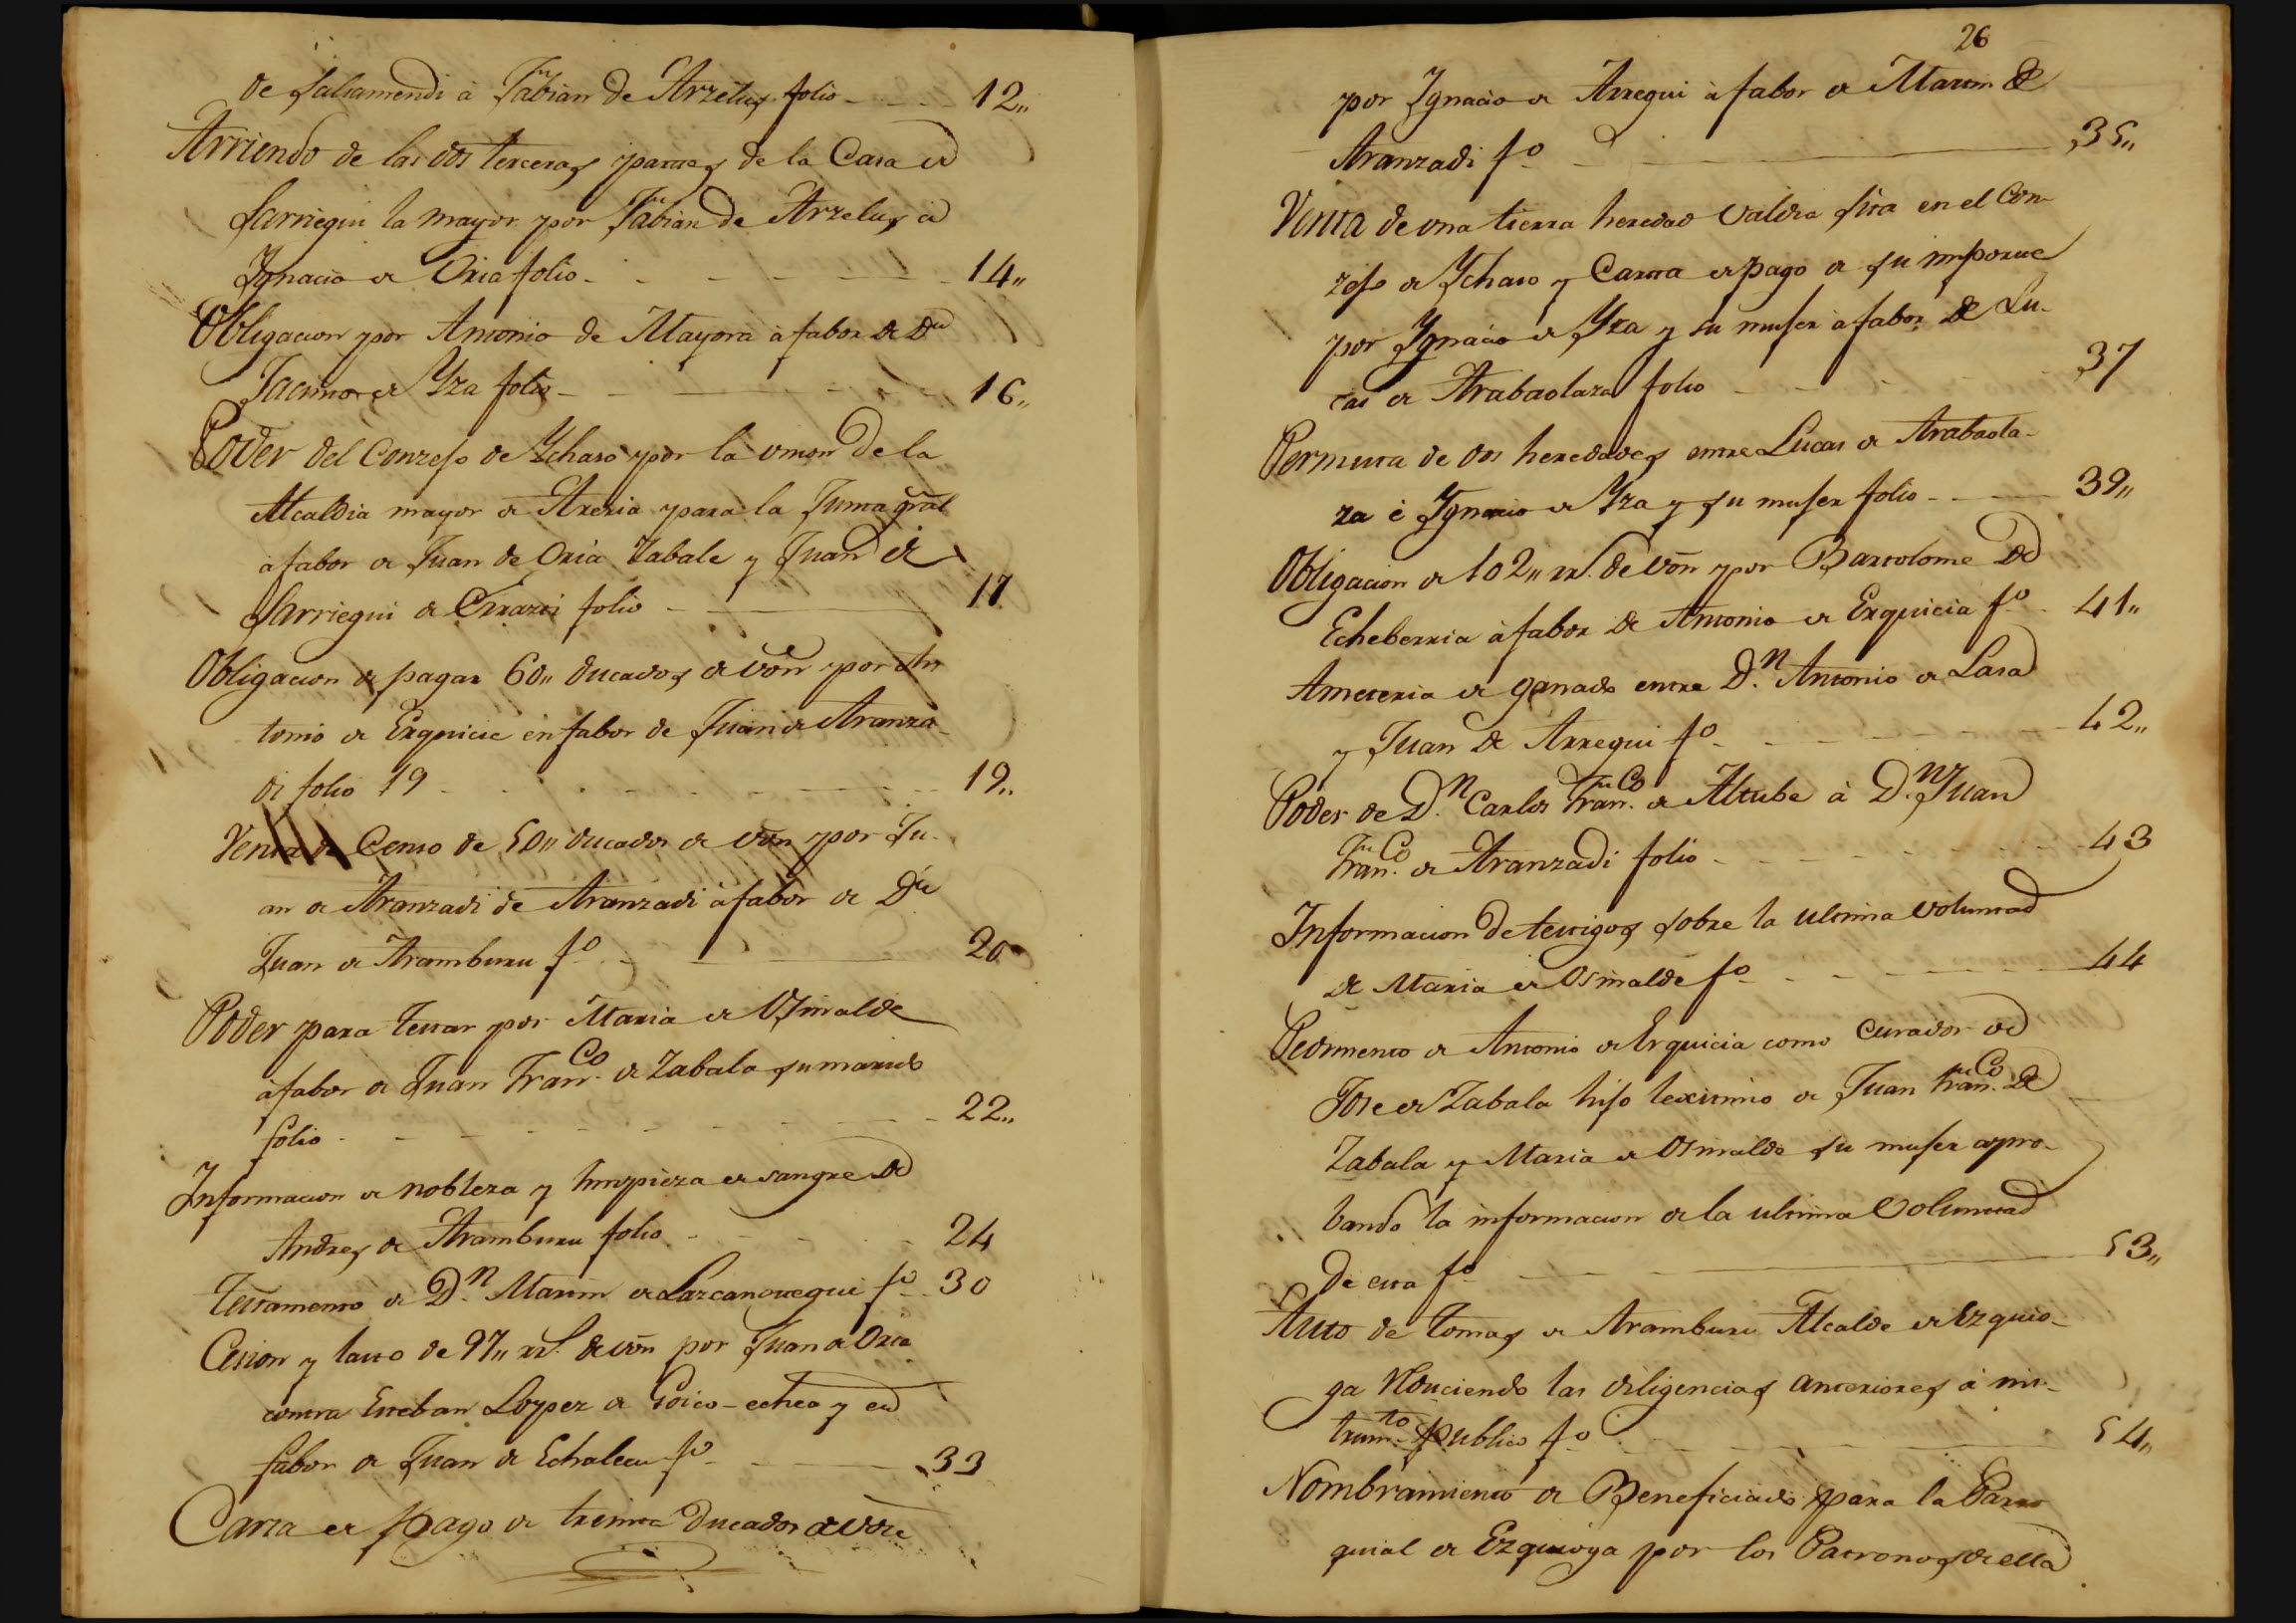 de Saliamendi à Fabian de Arzelus folio 12„
Arriendo de las dos terceras partes de la Casa de
Sarriegui la mayor por Fabian de Arzelus a
Ygnacio de Oria folio 14„
Obligacion por Antonio de Mayora à fabor de Dn
Jacinto de Yza folio 16„
Poder del Conzejo de Ychaso por la union de la
Alcaldia mayor de Areria para la Junta gral
à fabor de Juan de Oria Zabale y Juan de
Sarriegui de folio 17
Obligacion de pagar 60„ ducados de von por An
tonio de Erquicie en fabor de Juan de Aranza-
di folio 19 19„
Venta de Censo de 50„ ducados de von por Ju-
an de Aranzadi de Aranzadi à fabor de Dn
Juan de Aramburu fo 20
Poder para testar por Maria de Osinalde
à fabor de Juan Franco de Zabala su marido
folio 22„
Informacion de nobleza y limpieza de sangre de
Andres de Aramburu folio 24
Testamento de Dn Martin de Lazcanoitegui fo 30
Cesion y lasto de 97„ rrs. de von por Juan de Oria
contra Esteban Lopez de Goico-echea y en
fabor de Juan de Echalecu fo 33
Carta de pago de treinta Ducados de von
26
por Ygnacio de Arregui à fabor de Martin de
Aranzadi fo 35„
Venta de una tierra heredad valdia sita en el Con
zejo de Ychaso y Carta de pago de su importe
por Ygnacio de Yza y su mujer à fabor de Lu-
cas de Arabaolaza folio 37
Permuta de dos heredades entre Lucas de Arabaola-
za é Ygnacio de Yza y su mujer folio 39„
Obligacion de 102„ rrs. de von por Bartolome de
Echeberria à fabor de Antonio de Erquicia fo 41„
Ameteria de ganado entre Dn Antonio de Lasa
y Juan de Arregui fo 42„
Poder de Dn Carlos Franco de Altube à Dn Juan
Franco de Aranzadi folio 43
Informacion de testigos sobre la ultima voluntad
de Maria de Osinalde fo 44
Pedimento de Antonio de Erquicia como Curador de
Jose de Zabala hijo lexitimo de Juan Franco de
Zabala y Maria de Osinalde su mujer apro-
bando la informacion de la ultima voluntad
de esta fo 53„
Auto de Tomas de Aramburu Alcalde de Ezquio-
ga reduciendo las diligencias anteriores à ins-
trumto publico fo 54„
Nombramiento de Beneficiado para la Parro
quial de Ezquioga por los Patronos de ella